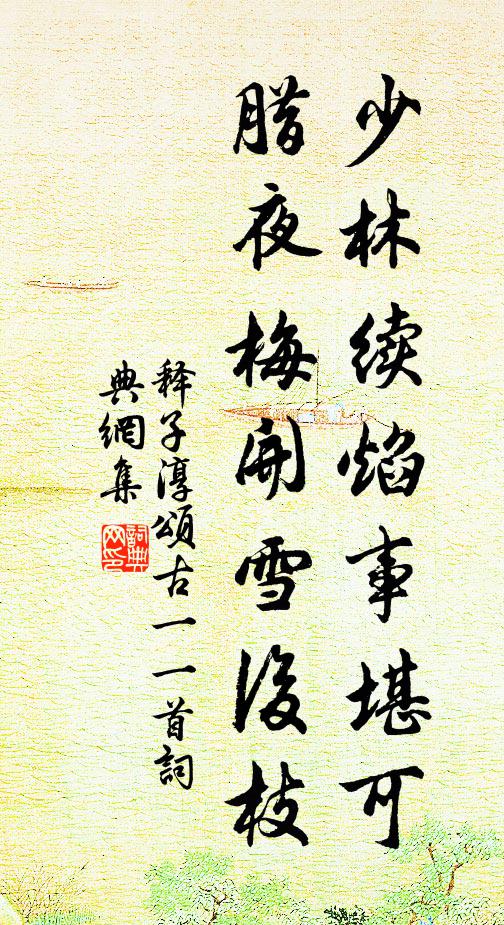 少林续焰事堪可
腊夜梅開雪後枝
释子淳頌古一一首詞
典網集
詞典
网印